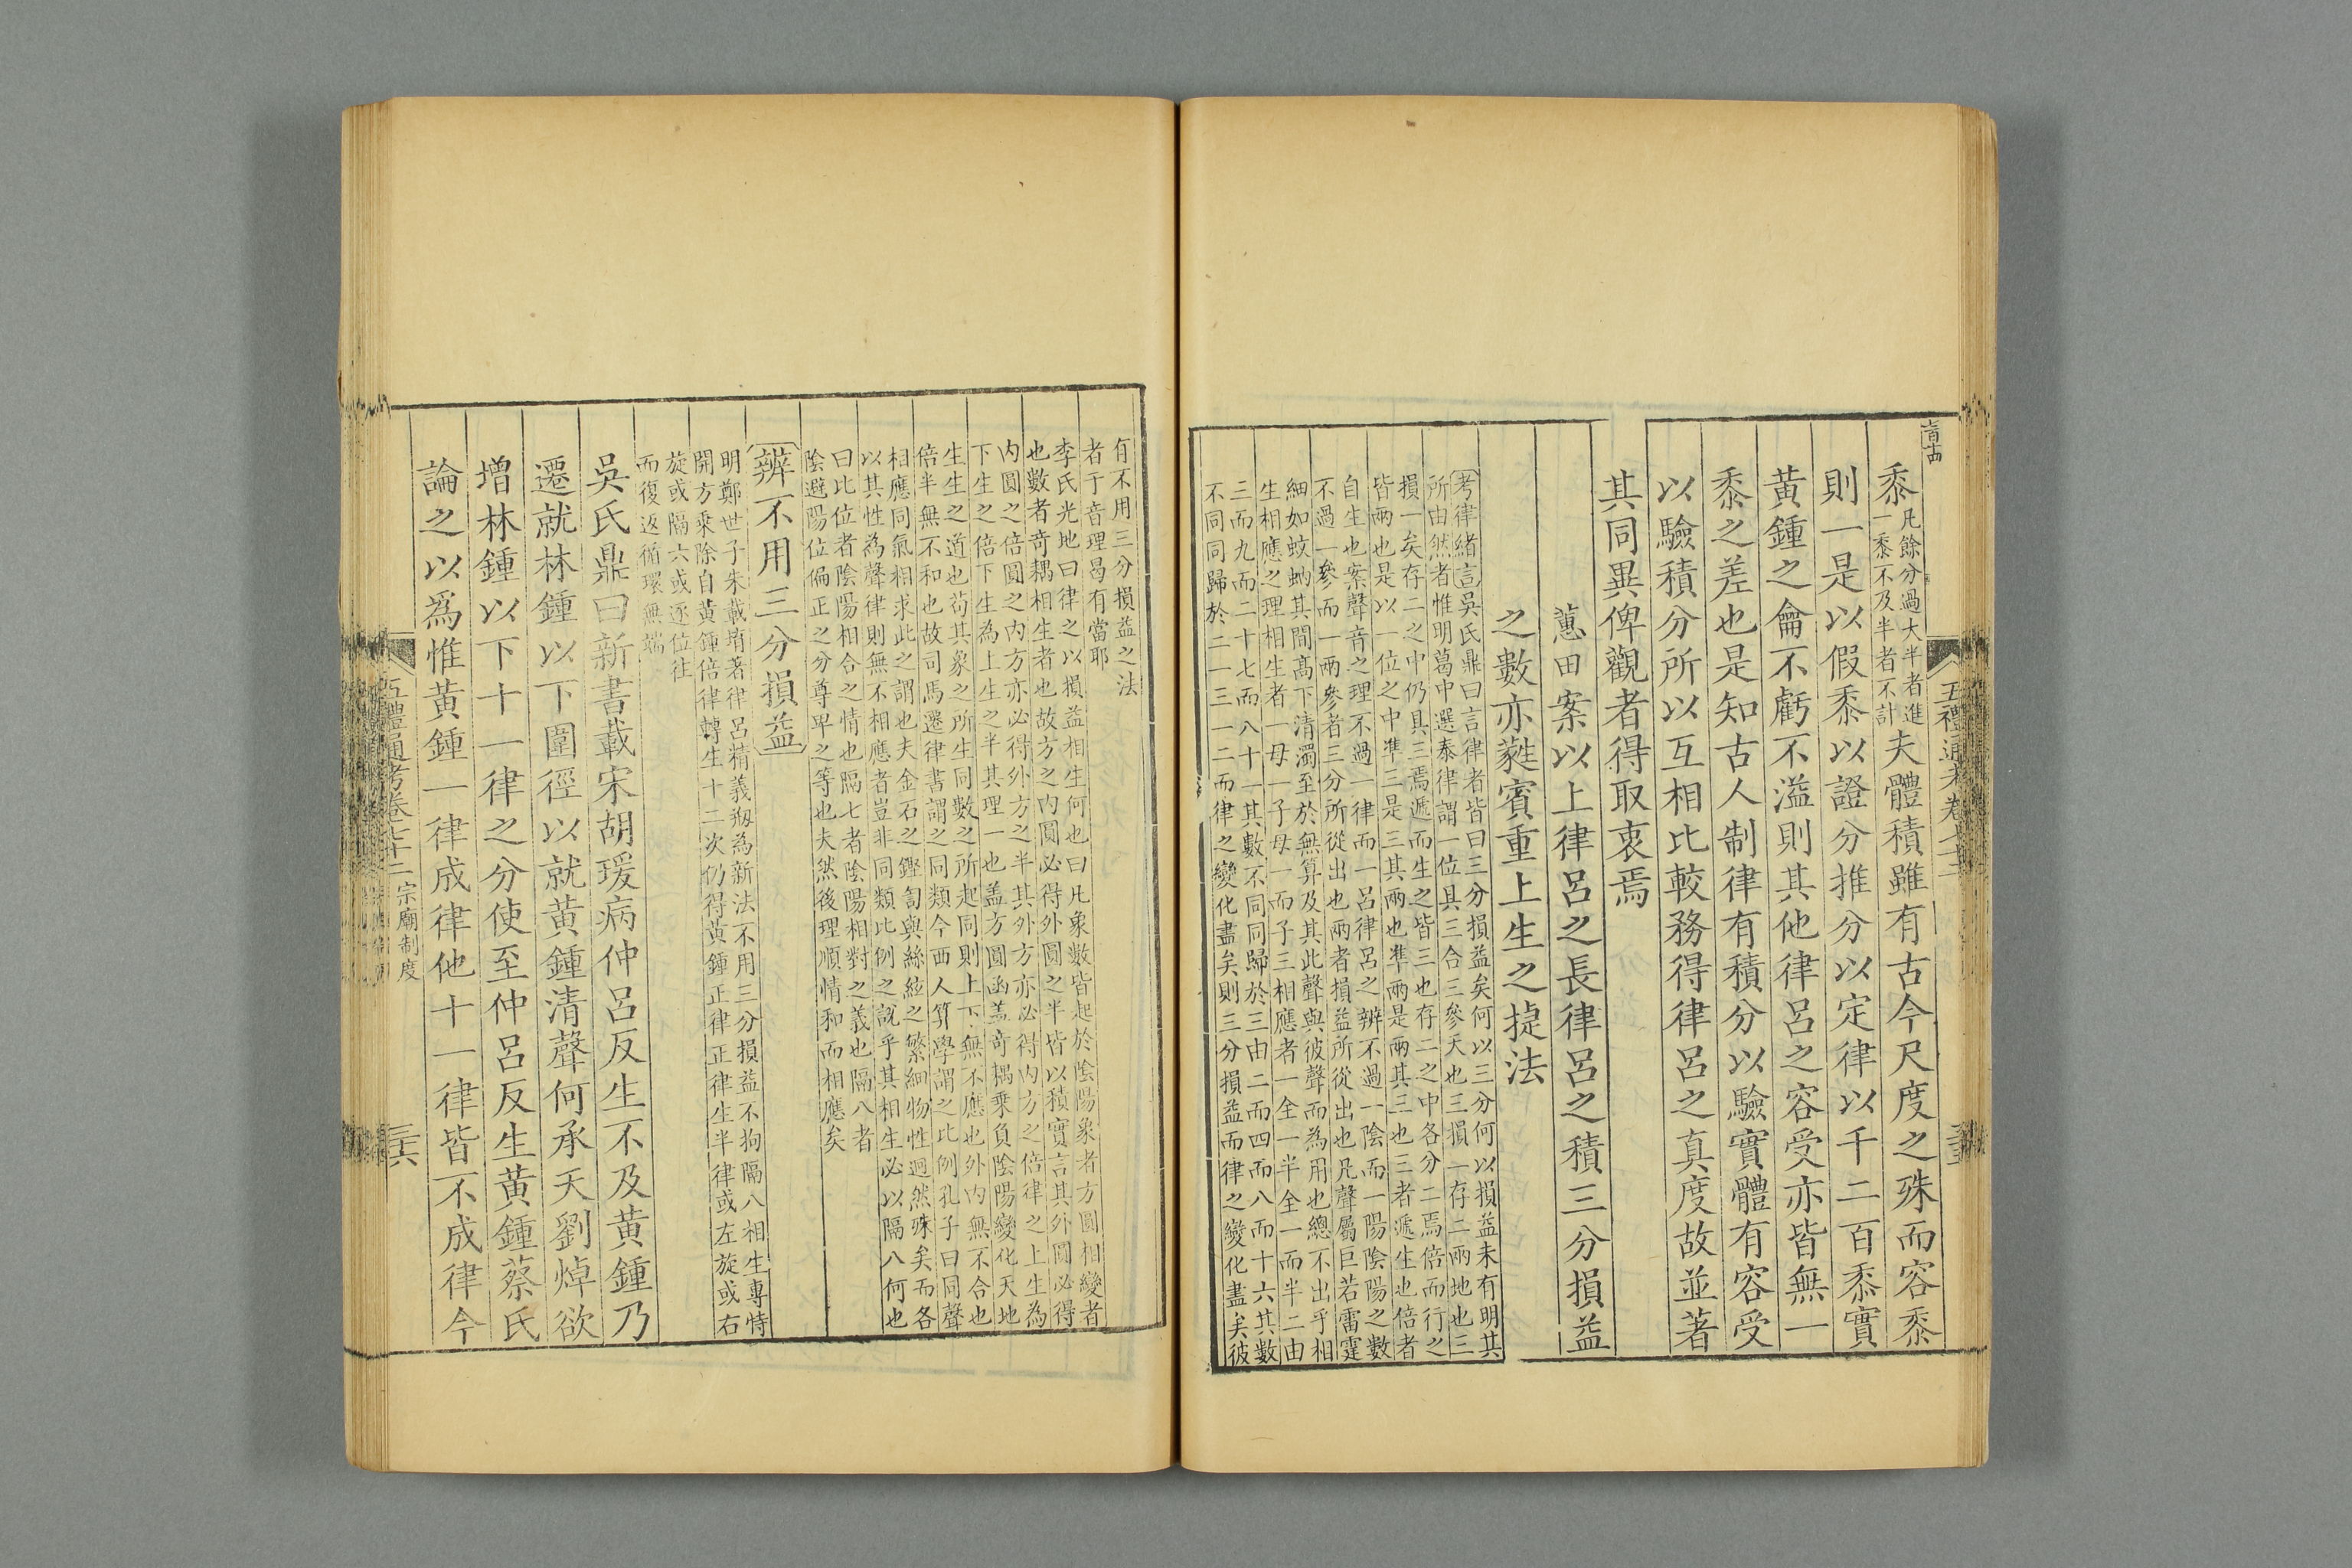 五禮通考卷七十二
黍凡餘分過大半者進
一黍不及半者不計夫體積雖有古今尺度之殊而容黍
則一是以假黍以證分推分以定律以千二百黍實
黃鍾之龠不虧不溢則其他律呂之容受亦皆無一
黍之差也是知古人制律有積分以驗實體有容受
以驗積分所以互相比較務得律呂之真度故並著
其同異俾觀者得取衷焉
蕙田案以上律呂之長律呂之積三分損益
之數亦蕤賓重上生之㨗法
考律緒言吳氏鼎曰言律者皆曰三分損益矣何以三分何以損益未有明其
所由然者惟明葛中選泰律謂一位具三合三參天也三損一存二兩地也三
損一矣存二之中仍具三焉遞而生之皆三也存二之中各分二焉倍而行之
皆兩也是以一位之中準三是三其兩也準兩是兩其三也三者遞生也倍者
自生也案聲音之理不過一律而一呂律呂之辨不過一陰而一陽陰陽之數
不過一參而一兩參者三分所從出也兩者損益所從出也凡聲屬巨若雷霆
細如蚊蚋其間高下清濁至於無算及其此聲與彼聲而為用也總不出乎相
生相應之理相生者一母一子母一而子三相應者一全一半全一而半二由
三而九而二十七而八十一其數不同同歸於三由二而四而八而十六其數
不同同歸於二一三一二而律之變化盡矣則三分損益而律之變化盡矣彼
有不用三分損益之法
者于音理曷有當耶
李氏光地曰律之以損益相生何也曰凡象數皆起於陰陽象者方圓相變者
也數者奇耦相生者也故方之内圓必得外圓之半皆以積實言其外圓必得
内圓之倍圓之内方亦必得外方之半其外方亦必得内方之倍律之上生為
下生之倍下生為上生之半其理一也蓋方圓函蓋奇耦乗負陰陽變化天地
生生之道也苟其象之所生同數之所起同則上下無不應也外内無不合也
倍半無不和也故司馬遷律書謂之同類今西人算學謂之比例孔子曰同聲
相應同氣相求此之謂也夫金石之鏗訇與絲絃之繁細物性迥然殊矣而各
以其性為聲律則無不相應者豈非同類比例之説乎其相生必以隔八何也
曰比位者陰陽相合之情也隔七者陰陽相對之義也隔八者
陰避陽位偏正之分尊卑之等也夫然後理順情和而相應矣
辨不用三分損益
明鄭世子朱載堉著律呂精義刱為新法不用三分損益不拘隔八相生專恃
開方乗除自黃鍾倍律轉生十二次仍得黃鍾正律正律生半律或左旋或右
旋或隔六或逐位往
而復返循環無端
吳氏鼎曰新書載宋胡瑗病仲呂反生不及黃鍾乃
遷就林鍾以下圍徑以就黃鍾清聲何承天劉焯欲
增林鍾以下十一律之分使至仲呂反生黃鍾蔡氏
論之以為惟黃鍾一律成律他十一律皆不成律今
五禮通考卷七十二 宗廟制度
三六